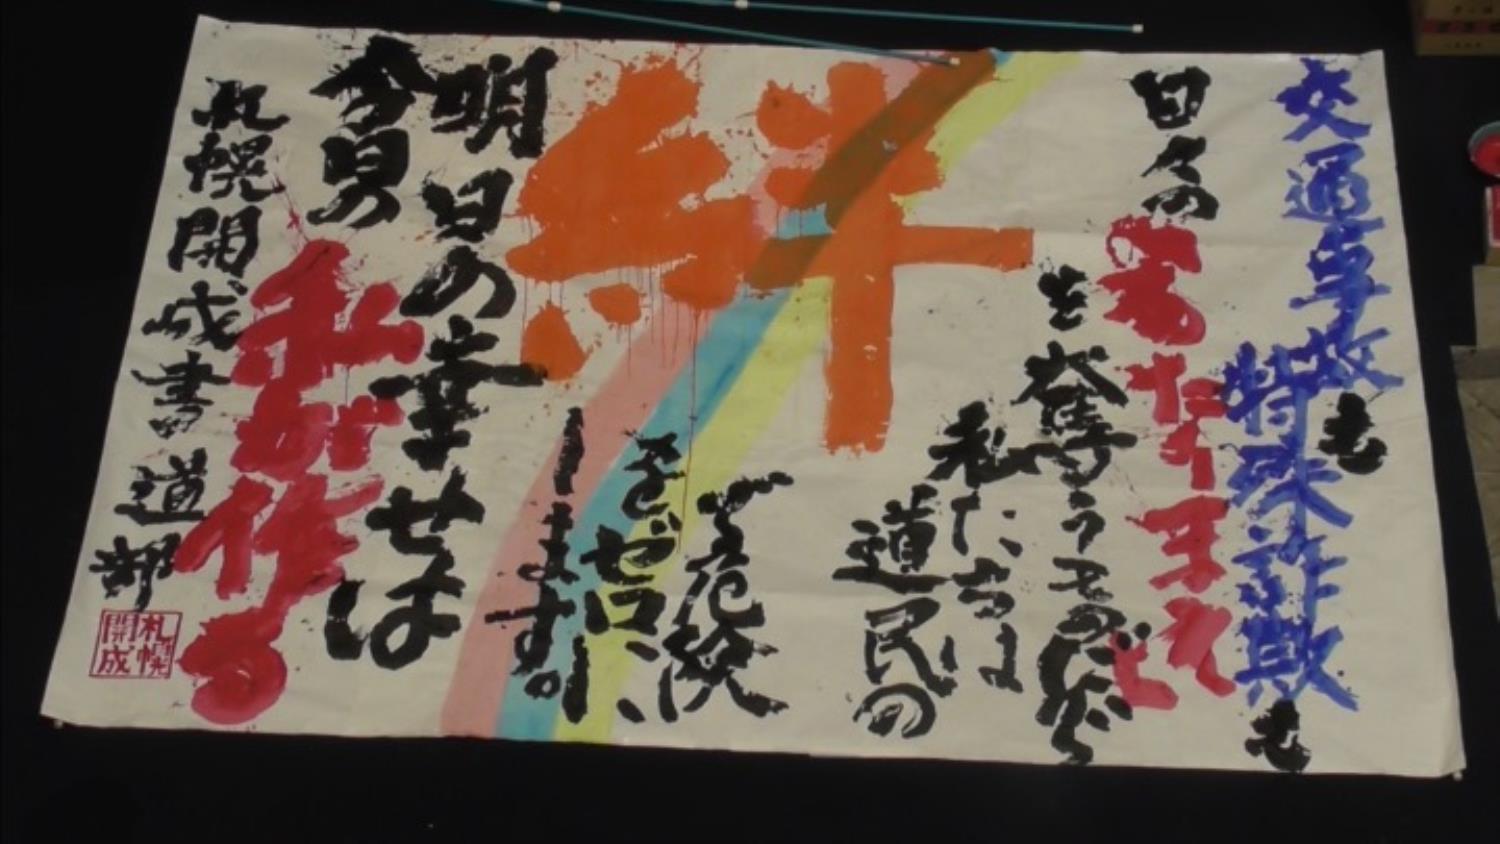 交通事故も
特殊詐欺も
日々のあたりまえ
を奪うものだから
私たちは
道民の
危険
をゼロに
します。
絆
明日の幸せは
今日の私が作る
札幌開成書道部
札幌
開成